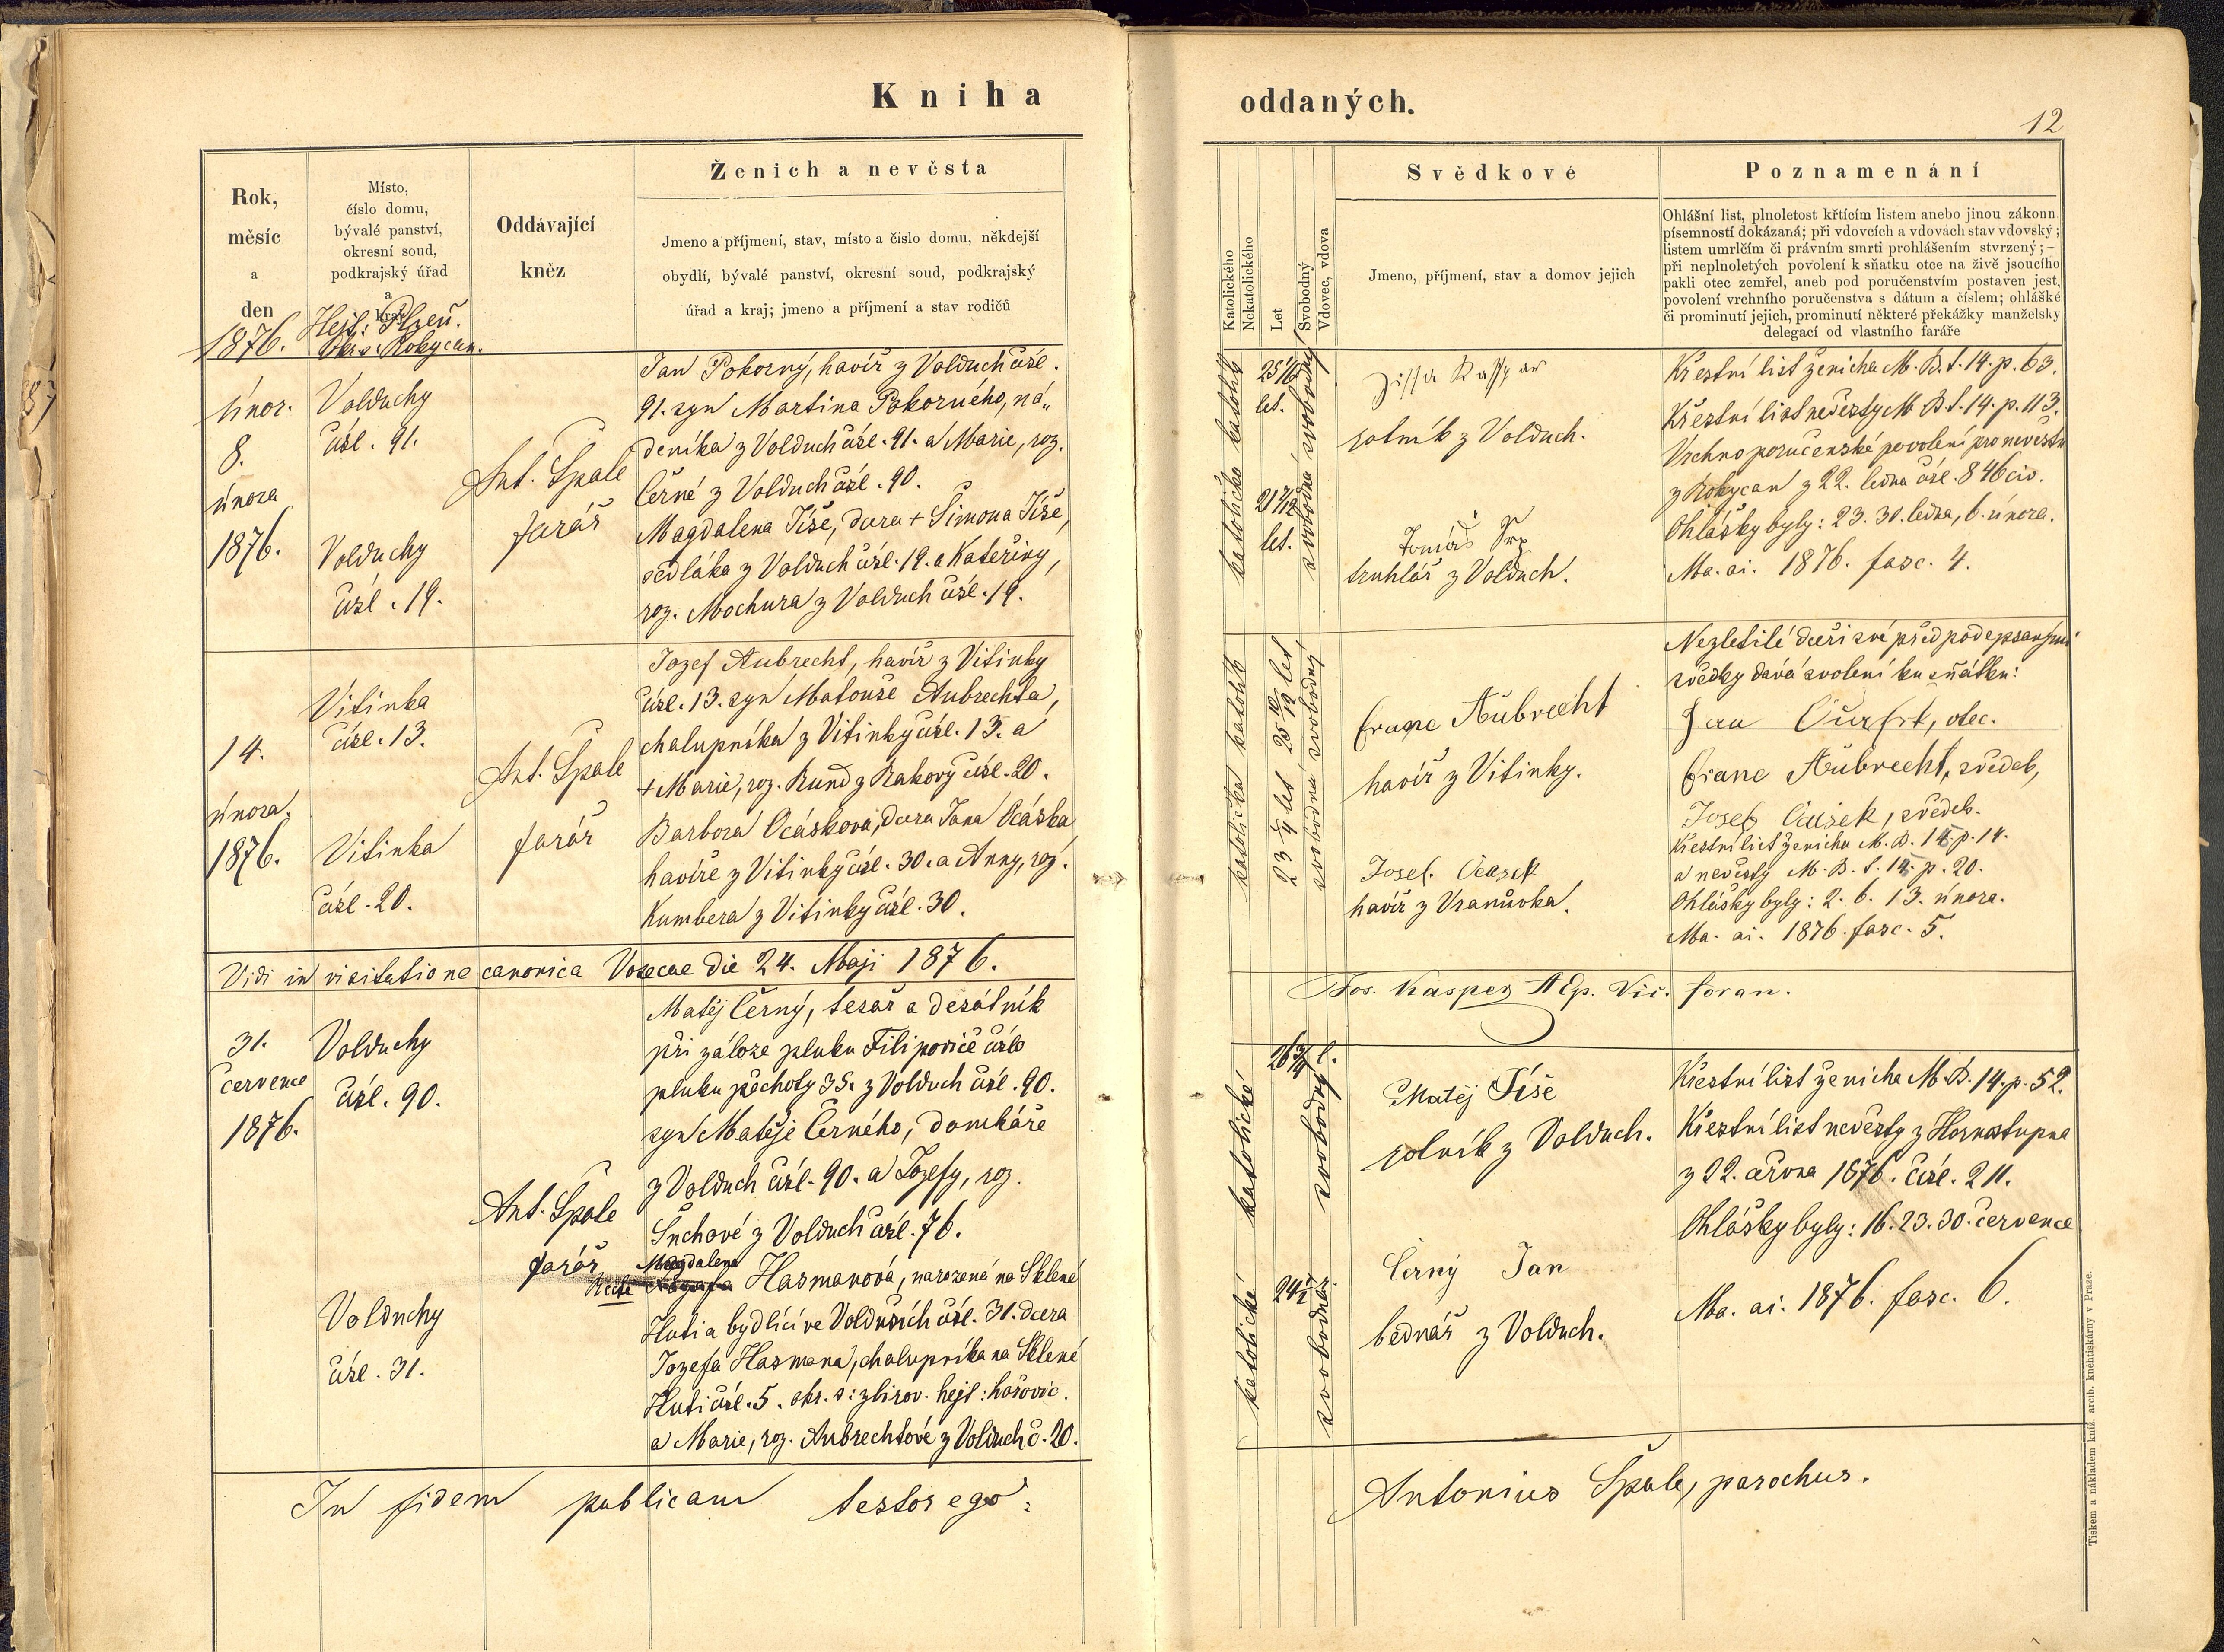 Kniha
Rok,
měsíc
a
den
1876.
Místo,
číslo domu,
bývalé panství,
okresní soud,
podkrajský úřad
a
kraj
Hejt: Plzeň.
Okr. s: Rokycan.
Oddávající
kněz
Ženich a nevěsta
Jmeno a příjmení, stav, místo a číslo domu, někdejší
obydlí, bývalé panství, okresní soud, podkrajský
úřad a kraj; jmeno a příjmení a stav rodičů
únor.
8.
února
1876.
Volduchy
čísl. 91.
Volduchy
čísl. 19.
Ant. Špale
farář
Jan Pokorný, havíř z Volduch čísl.
91. syn Martina Pokorného, ná„
deníka z Volduch čísl. 91. a Marie, roz.
Černé z Volduch čísl. 90.
Magdalena Tíše, dcera + Šimona Tíše,
sedláka z Volduch čísl. 19. a Kateřiny,
roz. Mochura z Volduch čísl. 19.
14.
února.
1876.
Vitinka
čísl. 13.
Vitinka
čísl. 20.
Ant. Špale
farář
Jozef Aubrecht, havíř z Vitinky
čísl. 13. syn Matouše Aubrechta,
chalupníka z Vitinky čísl. 13. a
+ Marie, roz. Rund z Rakový čísl. 20.
Barbora Ocásková, dcera Jana Ocáska
havíře z Vitinky čísl. 30. a Anny, roz.
Kumbera z Vitinky čísl. 30.
Vidi in visitatione canonica Vosecae die 24. Maji 1876.
31.
července
1876.
Volduchy
čísl. 90.
Volduchy
čísl. 31.
Ant. Špale
farář
Matěj Černý, tesař a desátník
při záloze pluku Filipovič číslo
pluku pěchoty 35. z Volduch čísl. 90.
syn Matěje Černého, domkáře
z Volduch čísl. 90. a Jozefy, roz.
Suchové z Volduch čísl. 76.
Magdalena
Recte Hasmanová, narozená na Sklené
Huti a bydlící ve Volduších čísl. 31. dcera
Jozefa Hasmana, chalupníka na Sklené
Huti čísl. 5. okr. s: zbirov. hejt: hořovic.
a Marie, roz. Aubrechtové z Volduch č. 20.
In fidem publicam testor ego:
oddaných.
12
Katolického
Nekatolického
Let
Svobodný
Vdovec, vdova
Svědkové
Jmeno, příjmení, stav a domov jejich
Poznamenání
Ohlášní list, plnoletost křtícím listem anebo jinou zákonn
písemností dokázaná; při vdovcích a vdovách stav vdovský;
listem umrlčím či právním smrti prohlášením stvrzený; —
při neplnoletých povolení k sňatku otce na živě jsoucího
pakli otec zemřel, aneb pod poručenstvím postaven jest,
povolení vrchního poručenstva s dátum a číslem; ohlášké
či prominutí jejich, prominutí některé překážky manželsky
delegací od vlastního faráře
katolička katolík
let.
21 7/12
let.
svobodná svobodný
rolník z Volduch.
Tomáš Srp
truhlář z Volduch.
Křestní list ženicha M. B. t. 14. p. 63.
Křestní list nevěsty M. B. t. 14. p. 113.
Vrchno poručenské povolení pro nevěstu
z Rokycan z 22. ledna čísl. 846 civ.
Ohlášky byly: 23. 30. ledna, 6. února.
Ma. ai. 1876. fasc. 4.
katolička katolík
svobodná svobodný
Franc Aubrecht
havíř z Vitinky.
Josef
havíř z Vranůvka.
Nezletilé dceři své před podepsanými
svědky dává svolení ku sňatku:
Jan otec.
Franc Aubrecht, svědek,
Josef svědek.
Křestní list ženicha M. B. p. 14.
a nevěsty M. B. t. p. 20.
Ohlášky byly: 2. 6. 13. února.
Ma. ai. 1876. fasc. 5.
Jos. Kasper AEp. Vic. foran.
katolické
26 3/4 l.
svobodný
katolické
svobodná
Matěj Tíše
rolník z Volduch.
Černý Jan
bednář z Volduch.
Křestní list ženicha M. B. 14. p. 52.
Křestní list nevěsty z
z 22. června 1876. čísl. 211.
Ohlášky byly: 16. 23. 30. července
Ma. ai. 1876. fasc. 6.
Antonius Špale, parochus.
Tiskem a nákladem kníž. arcib. knihtiskárny v Praze.